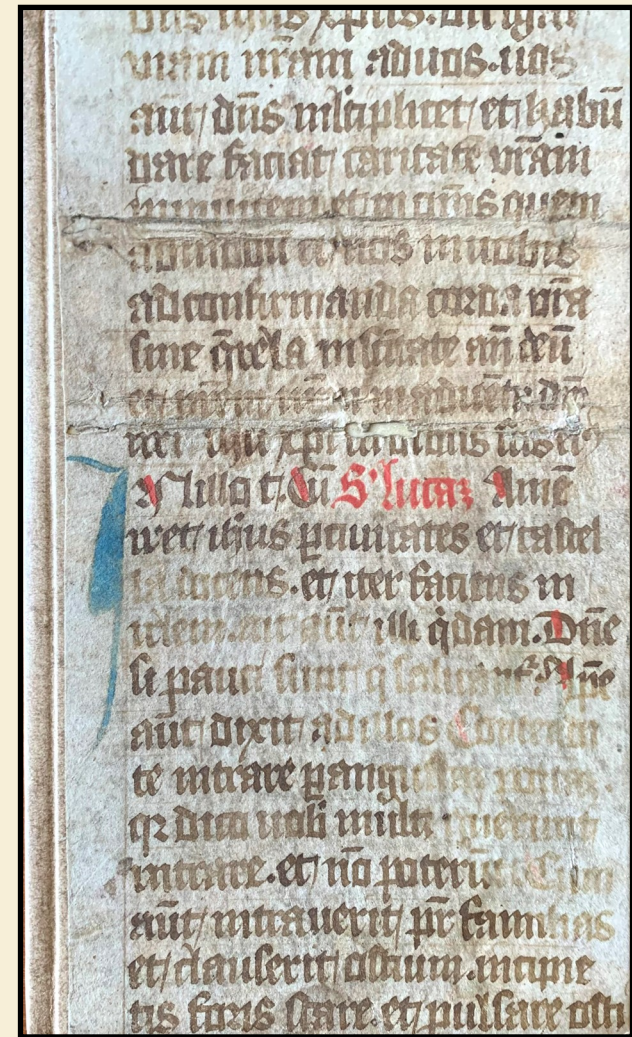 uiam nr̄am ad uos. uos
aūt dn̄s ml̄tiplicet et habū
dare faciat caritatē vr̄am
in inuicem et in om̄s quem
admodū et nos in uobis
ad confirmanda corda vr̄a
sine q̄rela in sc̄itate an̄ deū
et in aduētu dn̄i
nr̄i ih̄u xp̄i cū om̄ibus
In illo t. Dū S' lucaz Amē
iret ih̄us p ciuitates et castel
la docens. et iter faciens in
ierl̄em. ait aūt illi q̄dam. Dn̄e
si pauci sunt q saluant̄. Ip̄e
aūt dixit ad illos Contendi
te intrare p angustam portā.
qz dico uob̄ multi querunt
intrare. et nō poterūt Cum
aūt intrauerit pr̄ familias
et clauserit ostium. incipie
tis foris stare. et pulsare osti